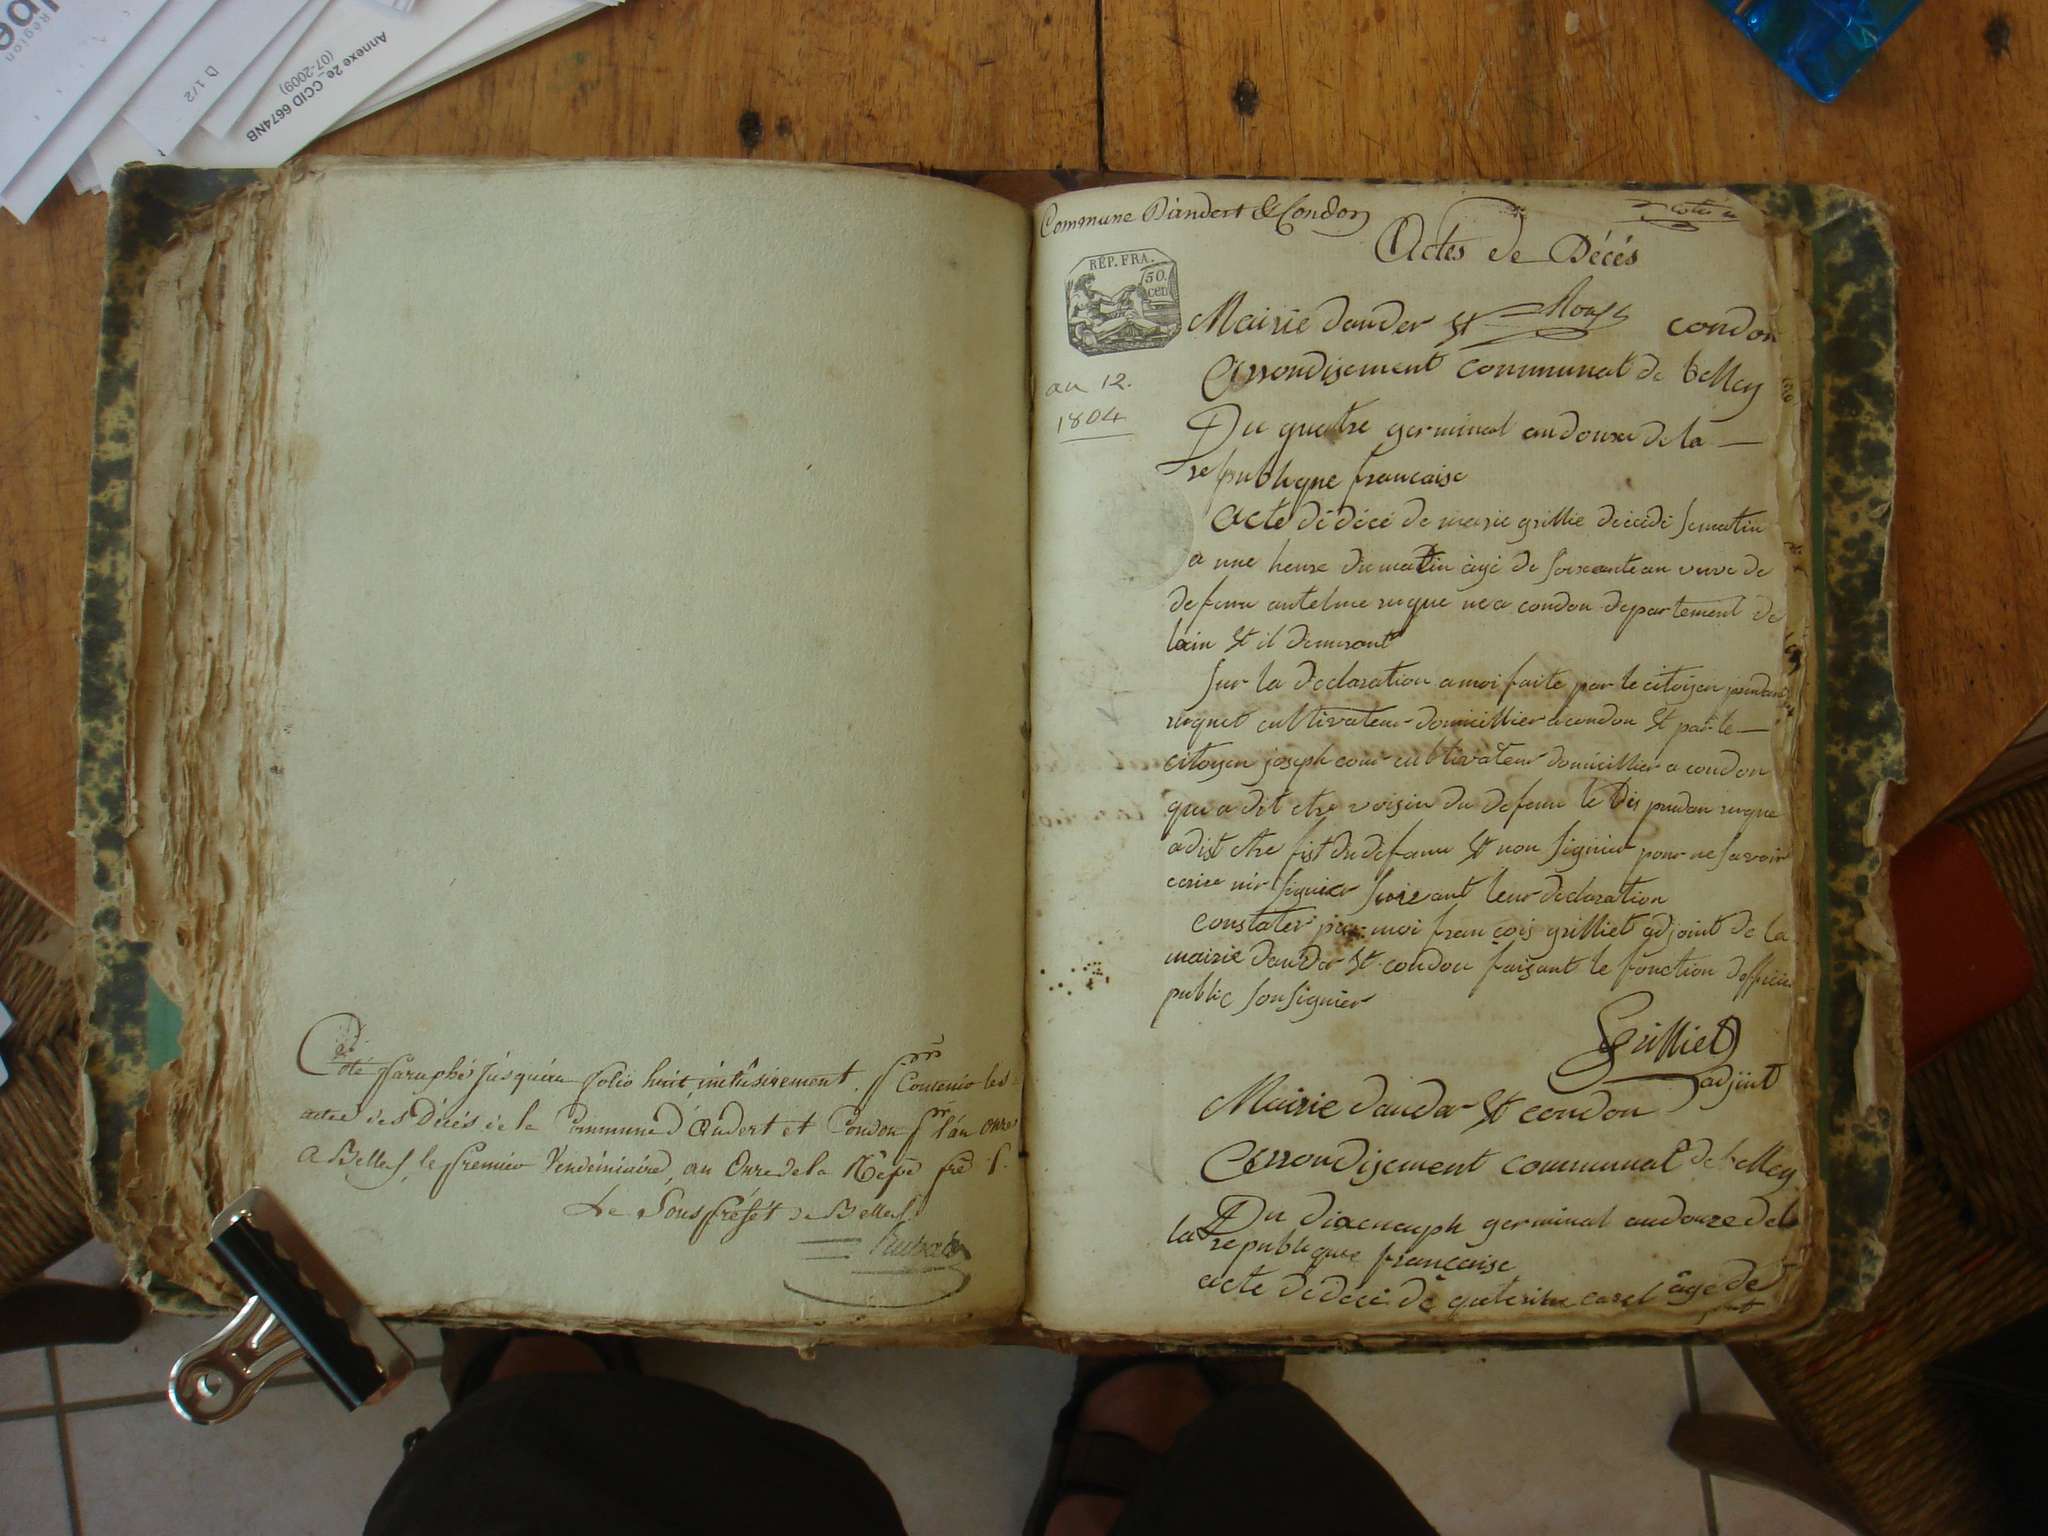 Region
D 1/2
Annexe 2e_CCID 6674NB
(07-2009)
Coté Paraphé jusqu'au folio huit inclusivement, pr Contenir les
actes des Décés de la Commune d'Andert et Condon pr l'an onze
A Belley le premier Vendémiaire, an Onze de la Rép
Le Sousprefet de Belley
Commune D'andert & Condon
Actes de Décés
REP. FRA.
50.
cen
an 12.
1804
Mairie dander et condon
Arrondisement communal de belley
Du quatre germinal an douze de la
republique francaise
acte dé décé de marie grillie décédé se matin
a une heure du matin âgé de soixante an veuve de
defunu antelme rugue ne a condon departement de
lain et il demurant
sur la declaration a moi faite par le citoyen
ruguet cultivateur domicillier a condon et par le
citoyen joseph cultivateur domicillier a condon
qui a dit etre voisin du defunu le dis rugue
a dist etre fist du defunu et non signier pour ne savoir
ecrire nir signier suivant leur declaration
constater par moi francois grilliet adjoint de la
mairie dander et condon faisant le fonction
public sousignier
Grilliet
adjoint
Mairie dander et condon
Arrondisement communal de belley
Du germinal an douze de
la republique francaise
acte dédécé de âgé de